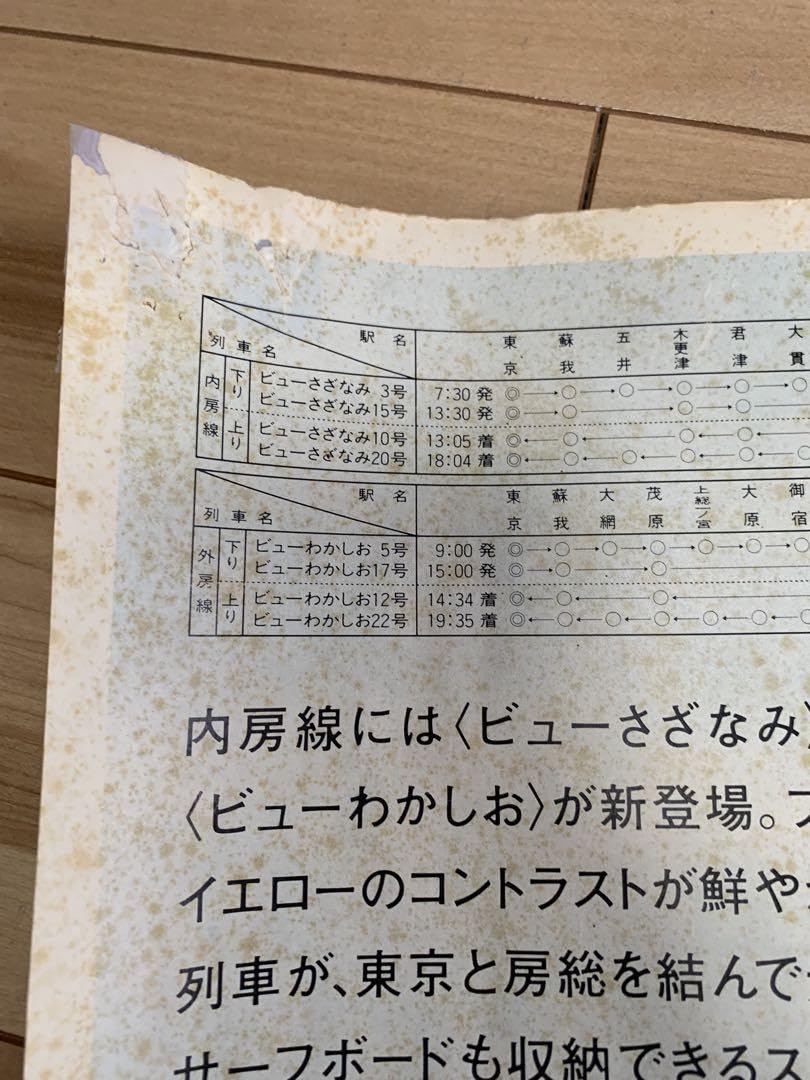 駅名 東京 蘇我 五井 木更津 君津 大貫
列車名
内房線 下り ビューさざなみ 3号 7:30 発 ◎→○→○→○→○→○
ビューさざなみ15号 13:30 発 ◎→○→○→○
上り ビューさざなみ10号 13:05 着 ◎←○←○←○←
ビューさざなみ20号 18:04 着 ◎←○←○←○←○←○
駅名 東京 蘇我 大網 茂原 上総一ノ宮 大原 御宿
列車名
外房線 下り ビューわかしお 5号 9:00 発 ◎→○→○→○→○→○→○
ビューわかしお17号 15:00 発 ◎→○→○
上り ビューわかしお12号 14:34 着 ◎←○←○←
ビューわかしお22号 19:35 着 ◎←○←○←○←○←○←○
内房線には〈ビューさざなみ〉
〈ビューわかしお〉が新登場。
イエローのコントラストが鮮や
列車が、東京と房総を結んで
サーフボードも収納できるス